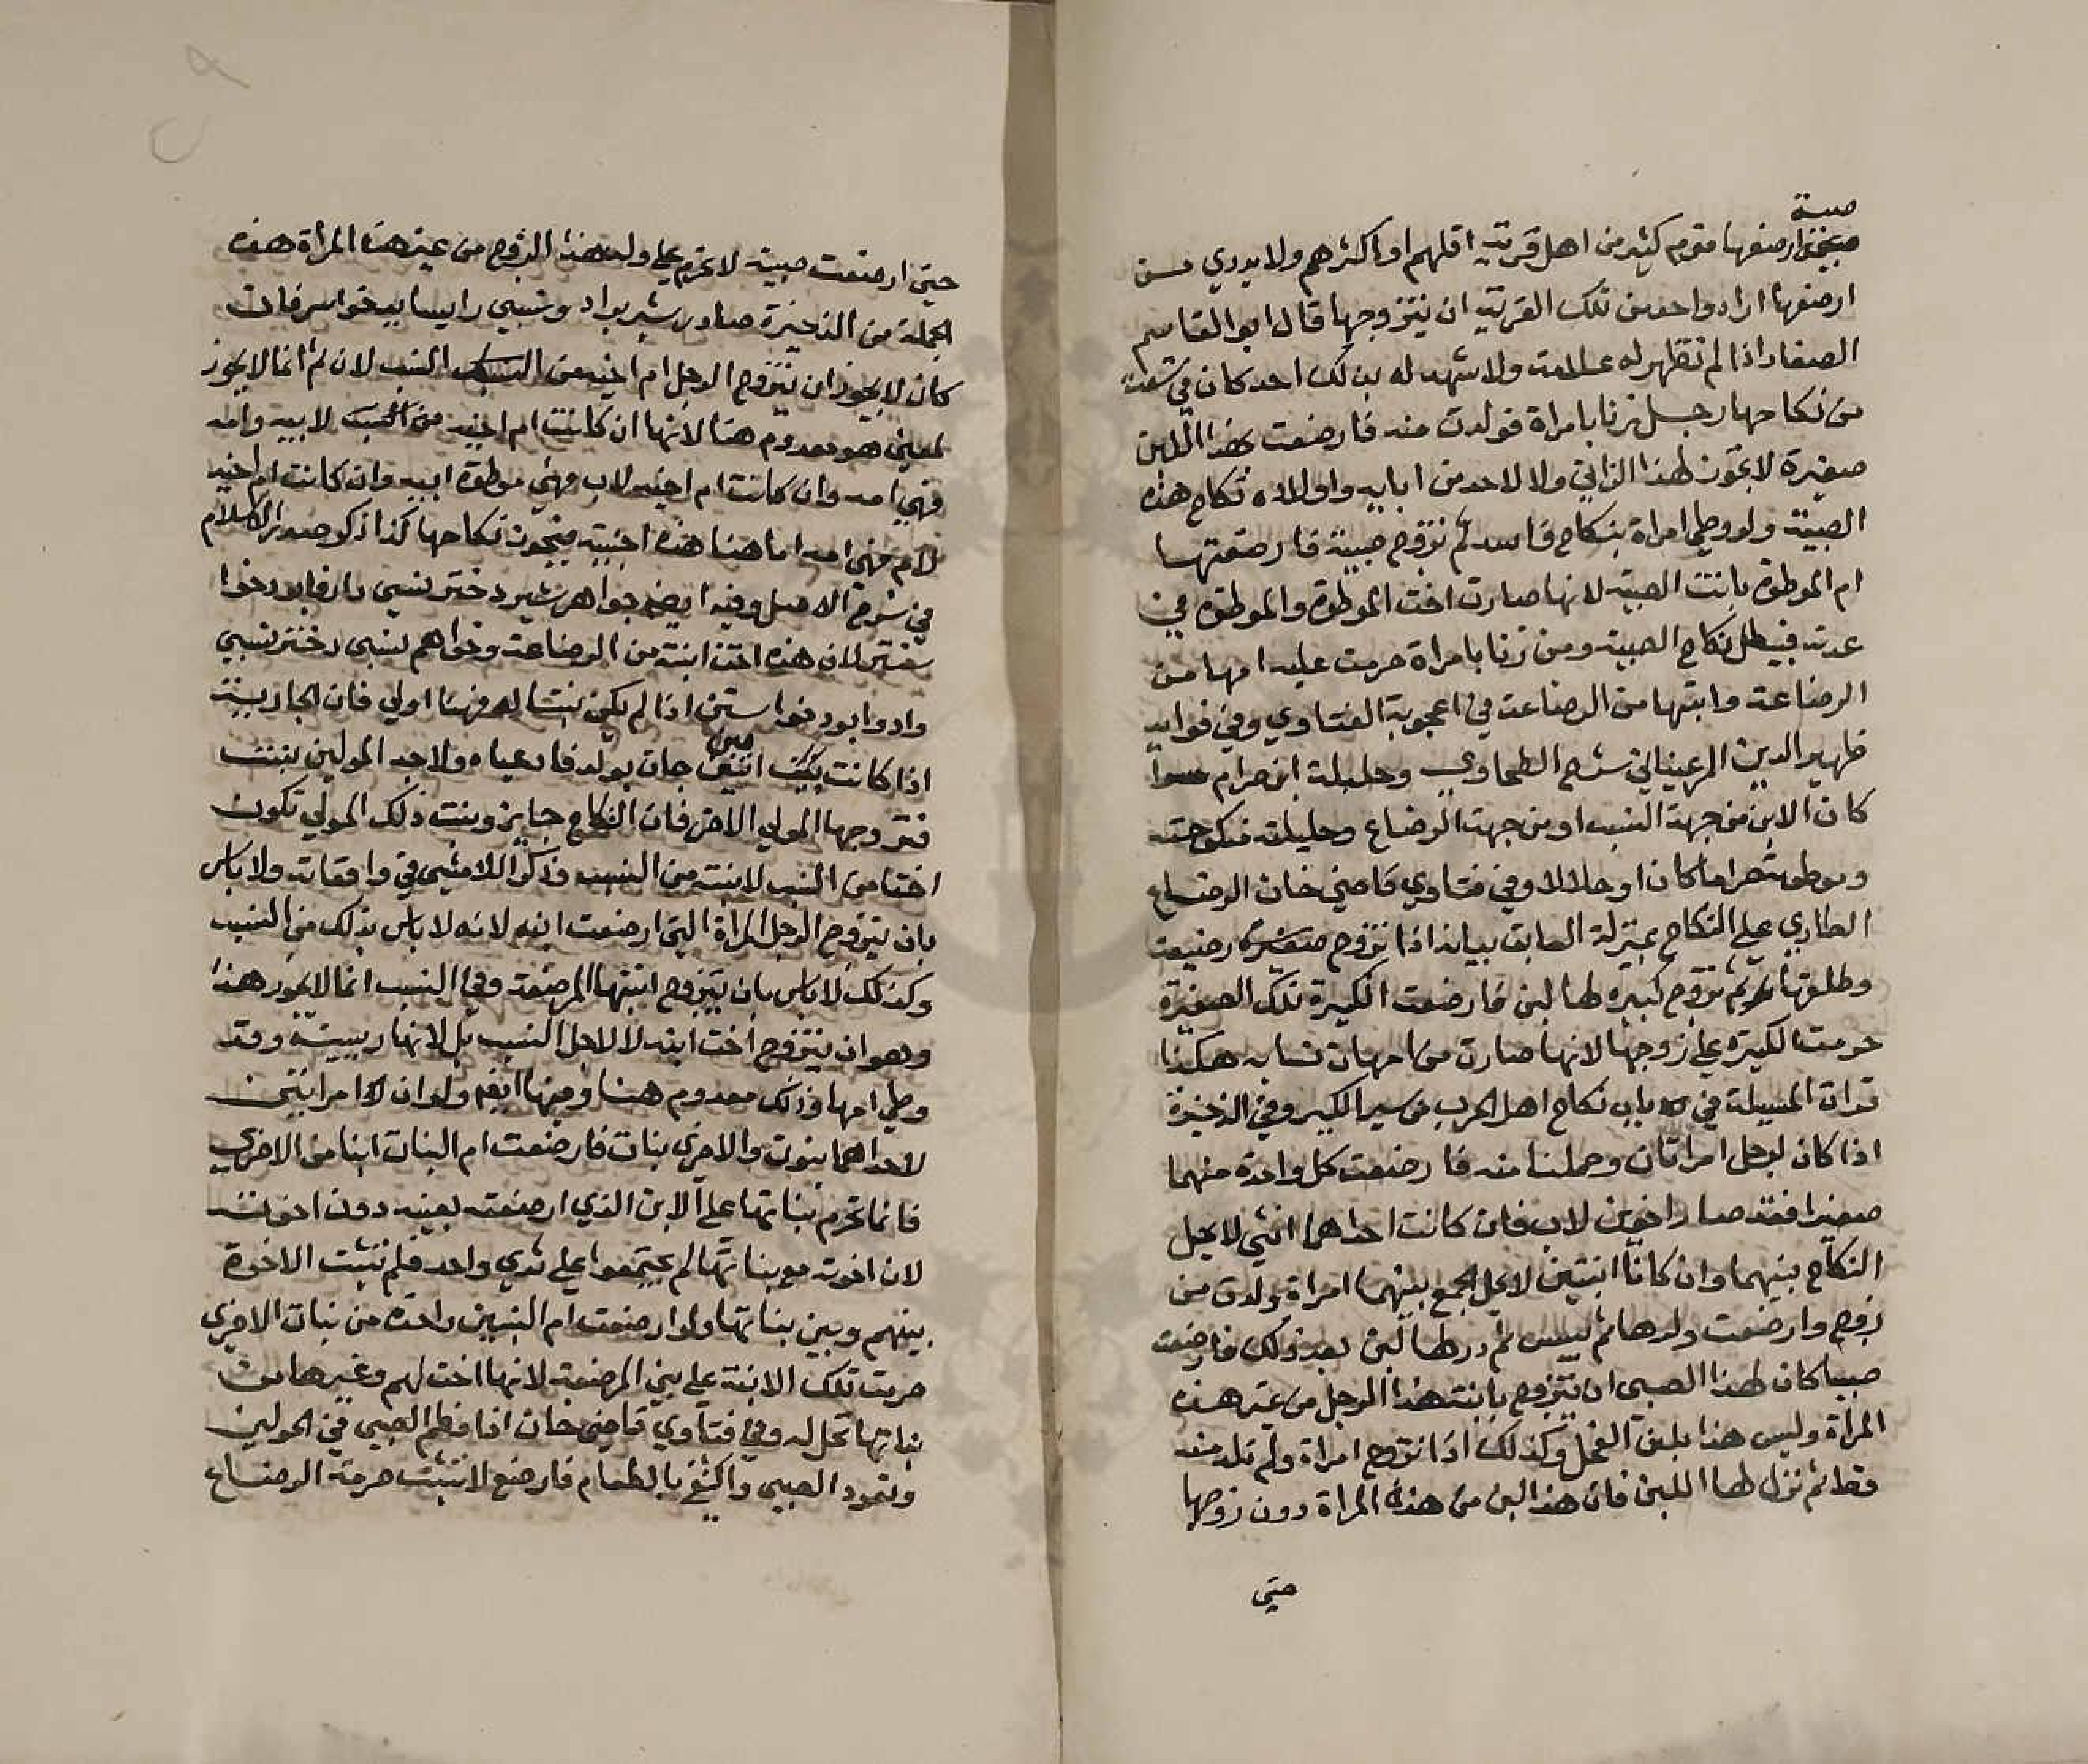 صبية
ارضعها قوم كثير من اهل قرية اقلهم او اكثرهم ولا يدري من
ارضعها اراد واحد من تلك القرية ان يتزوجها قال ابو القاسم
الصفار اذا لم تظهر له علامة ولا شهد له بذلك احد كان في سعة
من نكاحها رجل زنا بامراة فولدت منه فارضعت بهذا اللبن
صغيرة لا يجوز لهذا الزاني ولا لاحد من ابايه واولاده نكاح هذه
الصبية ولو وطي امراة بنكاح فاسد ثم تزوج صبية فارضعتها
ام الموطوة بانت الصبية لانها صارت اخت الموطوة والموطوة في
عدته فيبطل نكاح الصبية ومن زنا بامراة حرمت عليه امها من
الرضاعة وابنتها من الرضاعة في اعجوبة الفتاوي وفي فوايد
ظهير الدين المرغيناني شرح الطحاوي وحليلة ابن حرام سوا
كان الابن من جهة النسب او من جهة الرضاع وحليلته منكوحته
وموطوته حراما كان او حلالا وفي فتاوي قاضي خان الرضاع
الطاري علي النكاح بمنزلة السابق بيانه اذا تزوج صغيرة رضيعة
وطلقها ثم تزوج كبيرة لها لبن فارضعت الكبيرة تلك الصغيرة
حرمت الكبيرة علي زوجها لانها صارت من امهات نسايه هكذا
المسيلة في باب نكاح اهل الحرب من سير الكبير وفي الذخيرة
اذا كان لرجل امراتان وحملتا منه فارضعت كل واحدة منهما
صغيرا فقد صارا اخوين لاب فان كانت احداهما انثي لا يحل
النكاح بينهما وان كانا انثيين لا يحل الجمع بينهما امراة ولدت من
زوج وارضعت ولدها ثم يبس ثم در لها لبن بعد ذلك فارضعت
صبيا كان لهذا الصبي ان يتزوج بابنة هذا الرجل من غير هذه
المراة وليس هذا بلبن الفحل وكذلك اذا تزوج امراة ولم تلد منه
قط ثم نزل لها اللبن فان هذا البن من هذه المراة دون زوجها
حتي
حتي ارضعت صبية لا تحرم علي ولد هذا الزوج من غير هذه المراة هذه
الجملة من الذخيرة
كان لا يجوز ان يتزوج الرجل ام اخيه من النسب لان ثم انما لا يجوز
لمعني هو معدوم هنا لانها ان كانت ام اخيه من النسب لابيه وامه
فهي امه وان كانت ام اخيه لاب فهي موطوة ابيه وان كانت ام اخيه
لام فهي امه اما هنا هذه اجنبية فيجوز نكاحها كذا ذكر صدر الاسلام
في شرح الاصل وفيه ايضا جواهر شير دختر نسبي
لان هذه اخت ابنته من الرضاعة وخواهر نسبي دختر نسبي
اذا لم يكن بنتا له فهنا اولي فان الجارية
اذا كانت بين جات بولد فادعياه ولاحد الموليين بنت
فتزوجها المولي الاخر فان النكاح جايز وبنت ذلك المولي تكون
اختا من النسب لابنته من النسب وذكر اللامشي في واقعاته ولا باس
بان يتزوج الرجل المراة التي ارضعت ابنه لانه لا باس بذلك من النسب
وكذلك لا باس بان يتزوج ابنتها المرضعة وفي النسب انما لا يجوز هذا
وهو ان يتزوج اخت ابنه لا لاجل النسب بل لانها ربيبته وقد
وطي امها وذلك معدوم هنا وفيها ايضا ولو ان امراتين
لاحداهما بنون والاخري بنات فارضعت ام البنات ابنا من الاخري
فانما تحرم بناتها علي الابن الذي ارضعته بعينه دون اخوته
لان اخوته مع بناتها لم يجتمعوا علي ثدي واحد فلم تثبت الاخوة
بينهم وبين بناتها ولو ارضعت ام البنين واحدة من بنات الاخري
حرمت تلك الابنة علي بني المرضعة لانها اخت لهم وغيرها من
بناتها تحل له وفي فتاوي قاضي خان اذا فطم الصبي في الحولين
وتعود الصبي واكتفي بالطعام فارضع لا تثبت حرمة الرضاع